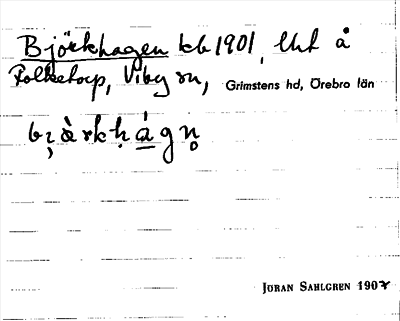 Björkhagen kb 1901, lht å
Folketorp, Viby sn, Grimstens hd, Örebro län
bi̯ä̀rkḥágn̥
JÖRAN SAHLGREN 1907